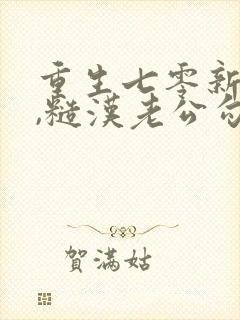 重生七零新
,糙漢老公勾
賀滿姑